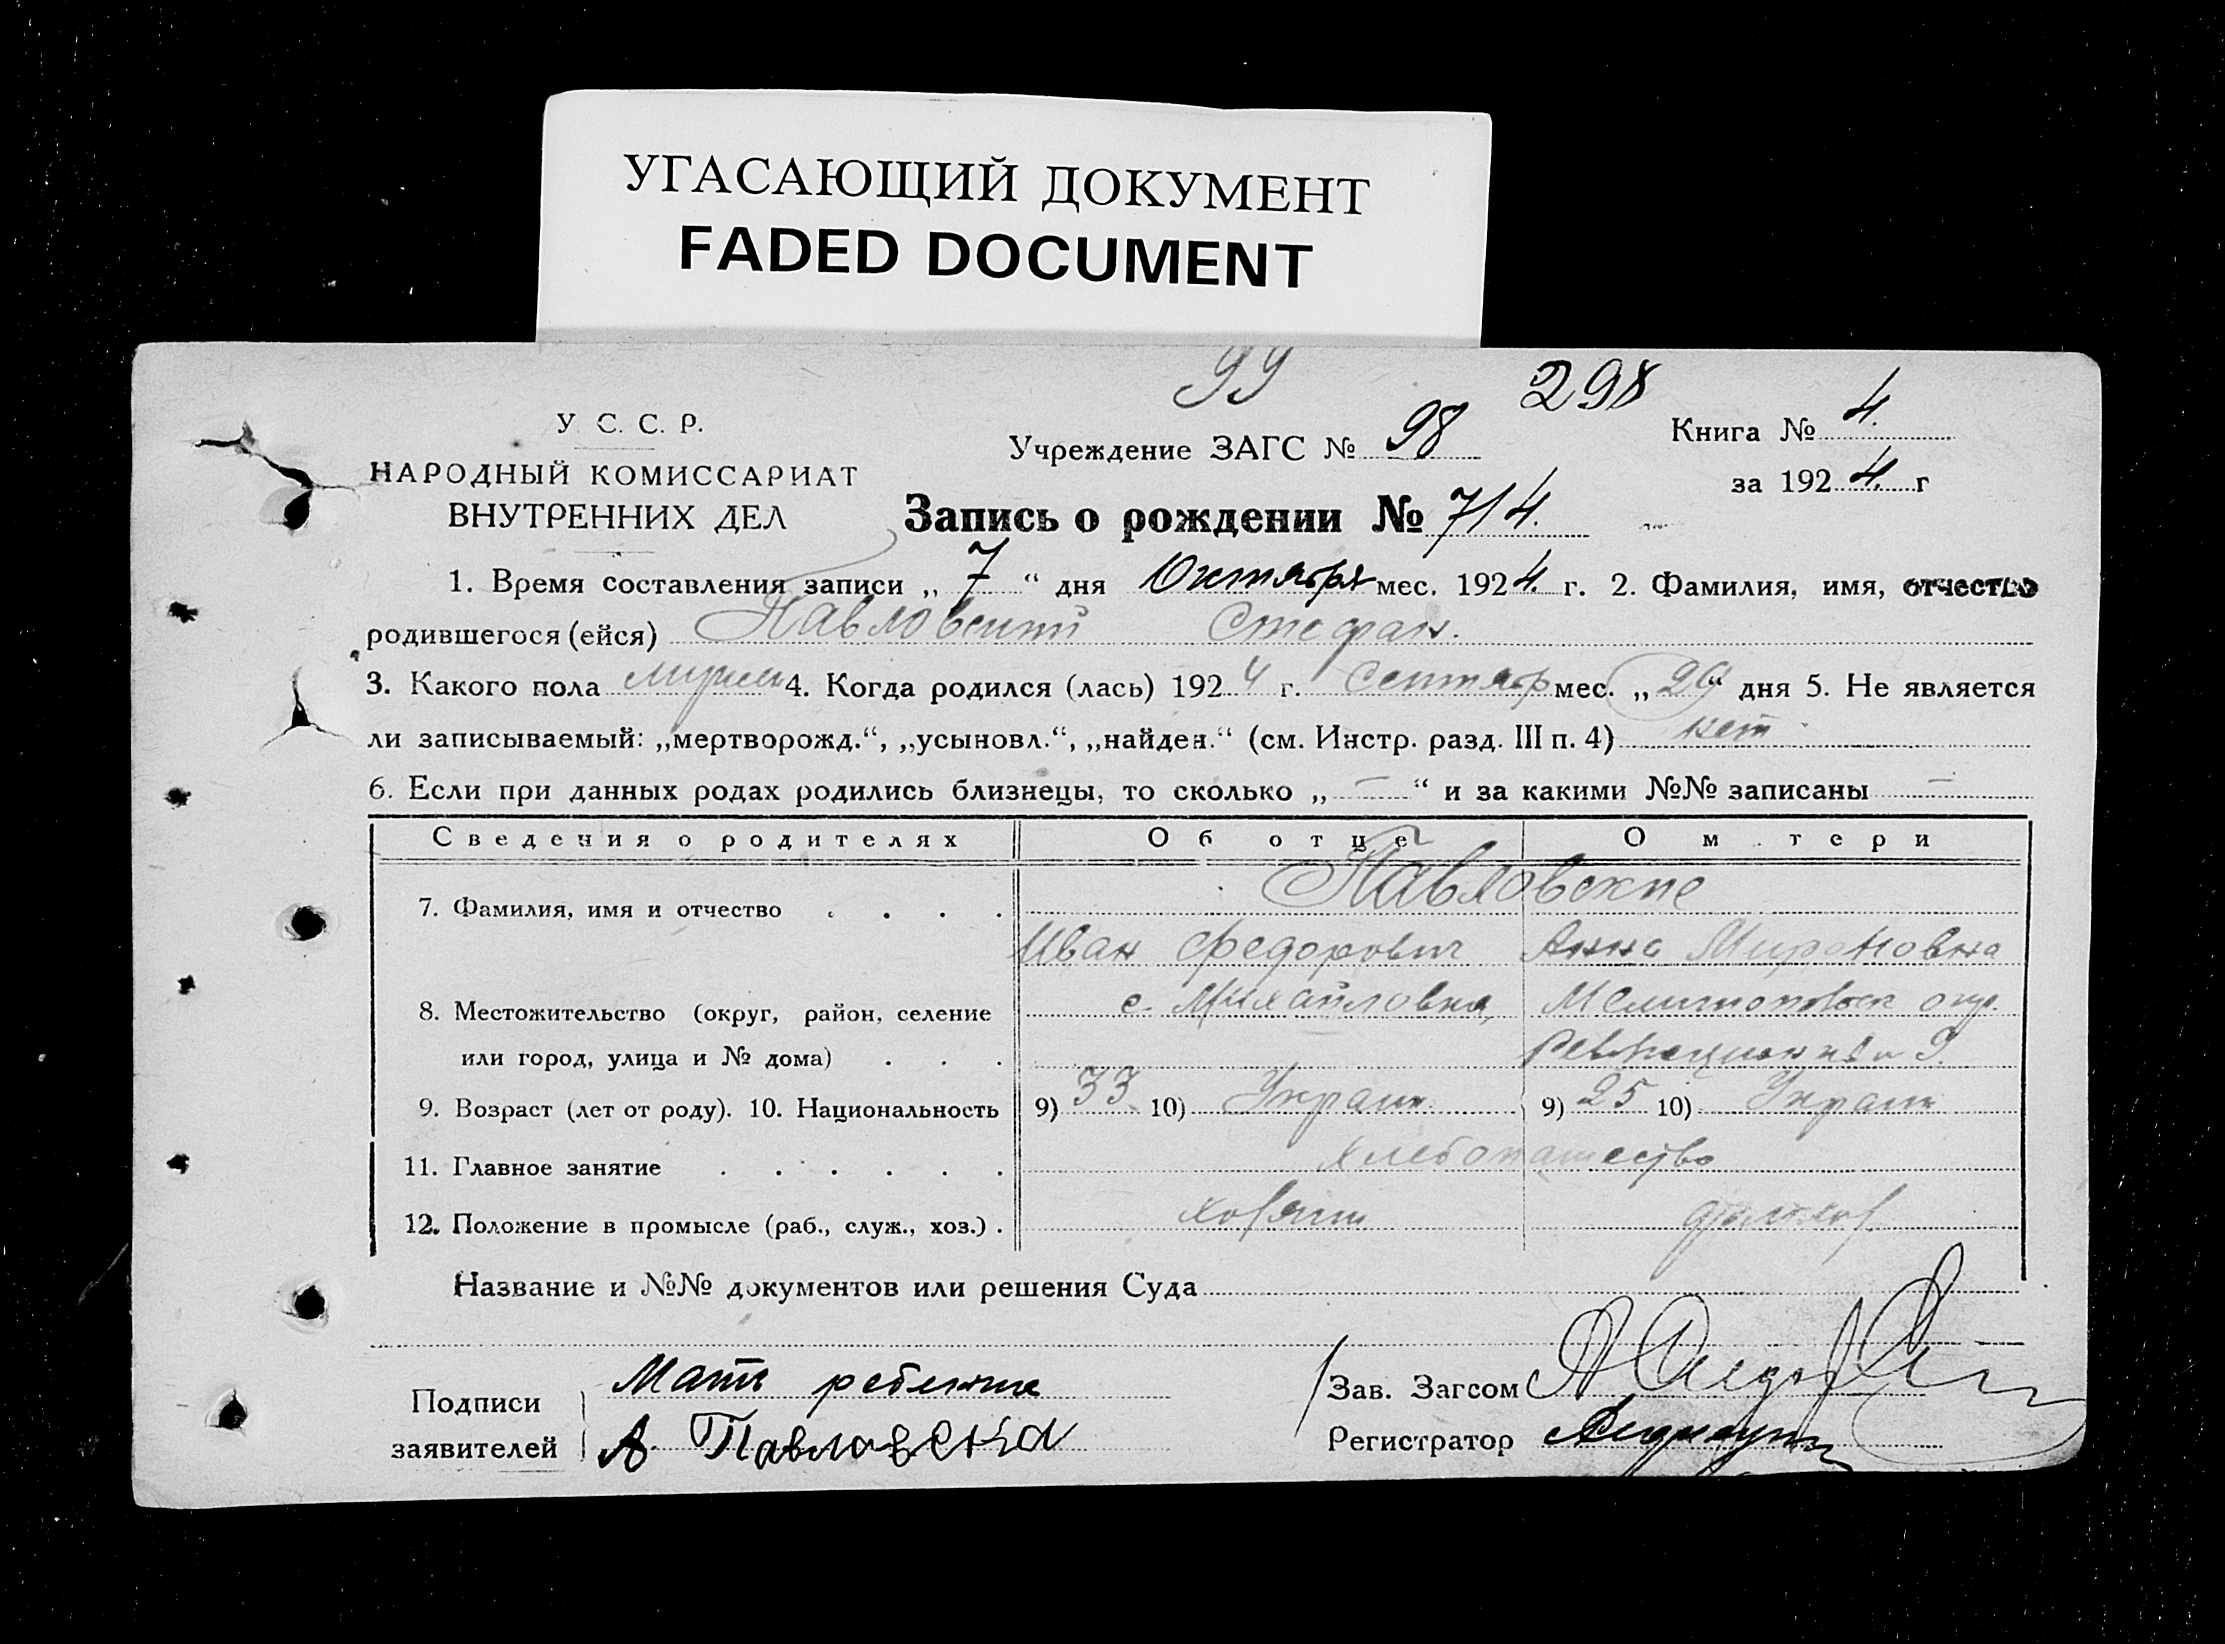 УГАСАЮЩИЙ ДОКУМЕНТ
FADED DOCUMENT
99
298
У С. С. Р.
НАРОДНЫЙ КОМИССАРИАТ
ВНУТРЕННИХ ДЕЛ
Учреждение ЗАГС № 98
Книга № 4.
за 1924. г
Запись о рождении № 714.
1. Время составления записи „ 7 “ дня Октября мес. 1924. г. 2. Фамилия, имя, отчество
родившегося (ейся) Павловский Стефан.
3. Какого пола 4. Когда родился (лась) 1924 г. Сентябр мес. „ 29 “ дня 5. Не является
ли записываемый: „мертворожд.“, „усыновл.“, „найден.“ (см. Инстр. разд. III п. 4) нет
6. Если при данных родах родились близнецы, то сколько „ — “ и за какими №№ записаны —
Сведения о родителях Об отце О м тери
7. Фамилия, имя и отчество . . . . Павловские
Иван Федорович Анна Мироновна
8. Местожительство (округ, район, селение с. Михайловка, Мелитопольск окр.
или город, улица и № дома) . . . 9.
9. Возраст (лет от роду). 10. Национальность 9) 33 10) Украин 9) 25 10) Украин
11. Главное занятие . . . . . . хлебопашество
12. Положение в промысле (раб., служ., хоз.) . хозяин
Название и №№ документов или решения Суда
Подписи
заявителей
Мать ребенка
А. Павловска
Зав. Загсом
Регистратор